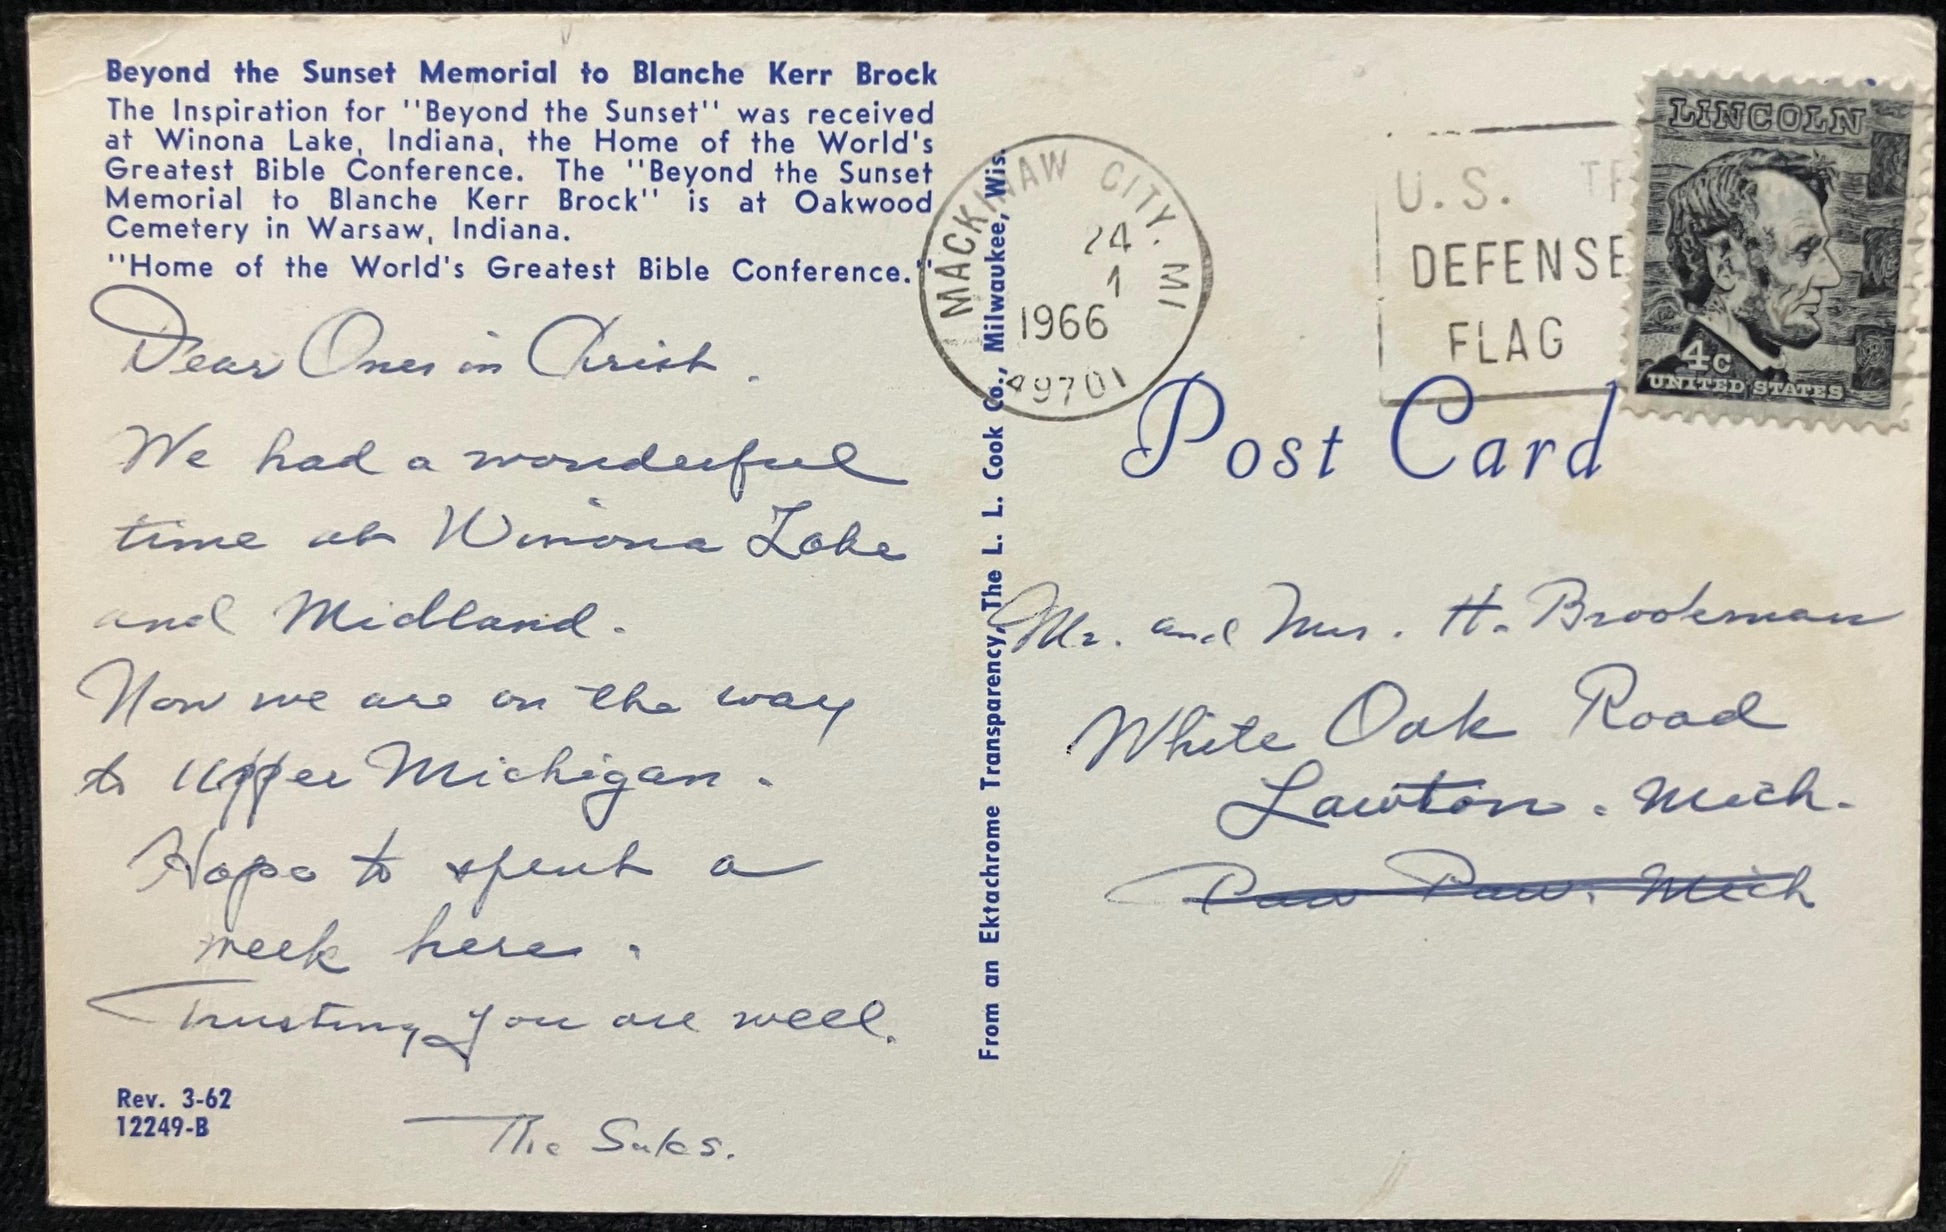 Beyond the Sunset Memorial to Blanche Kerr Brock
The Inspiration for "Beyond the Sunset" was received
at Winona Lake, Indiana, the Home of the World's
Greatest Bible Conference. The "Beyond the Sunset
Memorial to Blanche Kerr Brock" is at Oakwood
Cemetery in Warsaw, Indiana.
"Home of the World's Greatest Bible Conference."
Dear Ones in Christ.
We had a wonderful
time at Winona Lake
and Midland.
Now we are on the way
to Upper Michigan.
Hope to spent a
week here.
Trusting you are well.
The
Rev. 3-62
12249-B
From an Ektachrome Transparency, The L. L. Cook Co., Milwaukee, Wis.
MACKINAW CITY, MI
24
1
1966
49701
U.S.
DEFENSE
FLAG
LINCOLN
4c
UNITED STATES
Post Card
Mr. and Mrs. H. Brookman
White Oak Road
Lawton. Mich.
Paw Paw. Mich